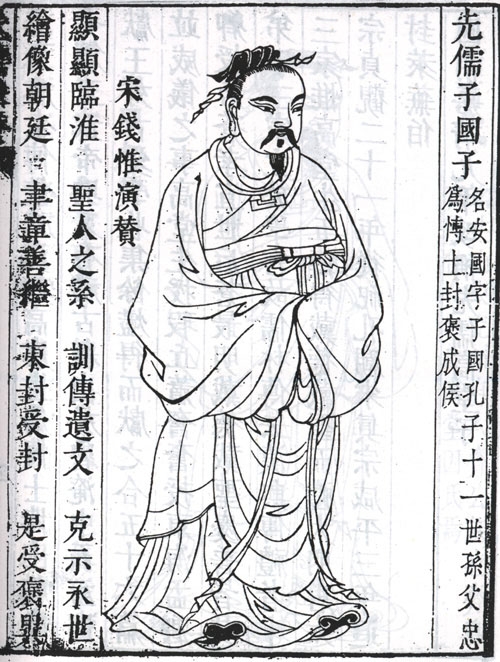 先儒子國子
名安國字子國孔子十一世孫父忠
爲博士封褒成侯
宋錢惟演贊
顯顯臨淮 聖人之系 訓傳遺文 克示永世
繪像朝廷 聿章善繼 東封受封 是受褒